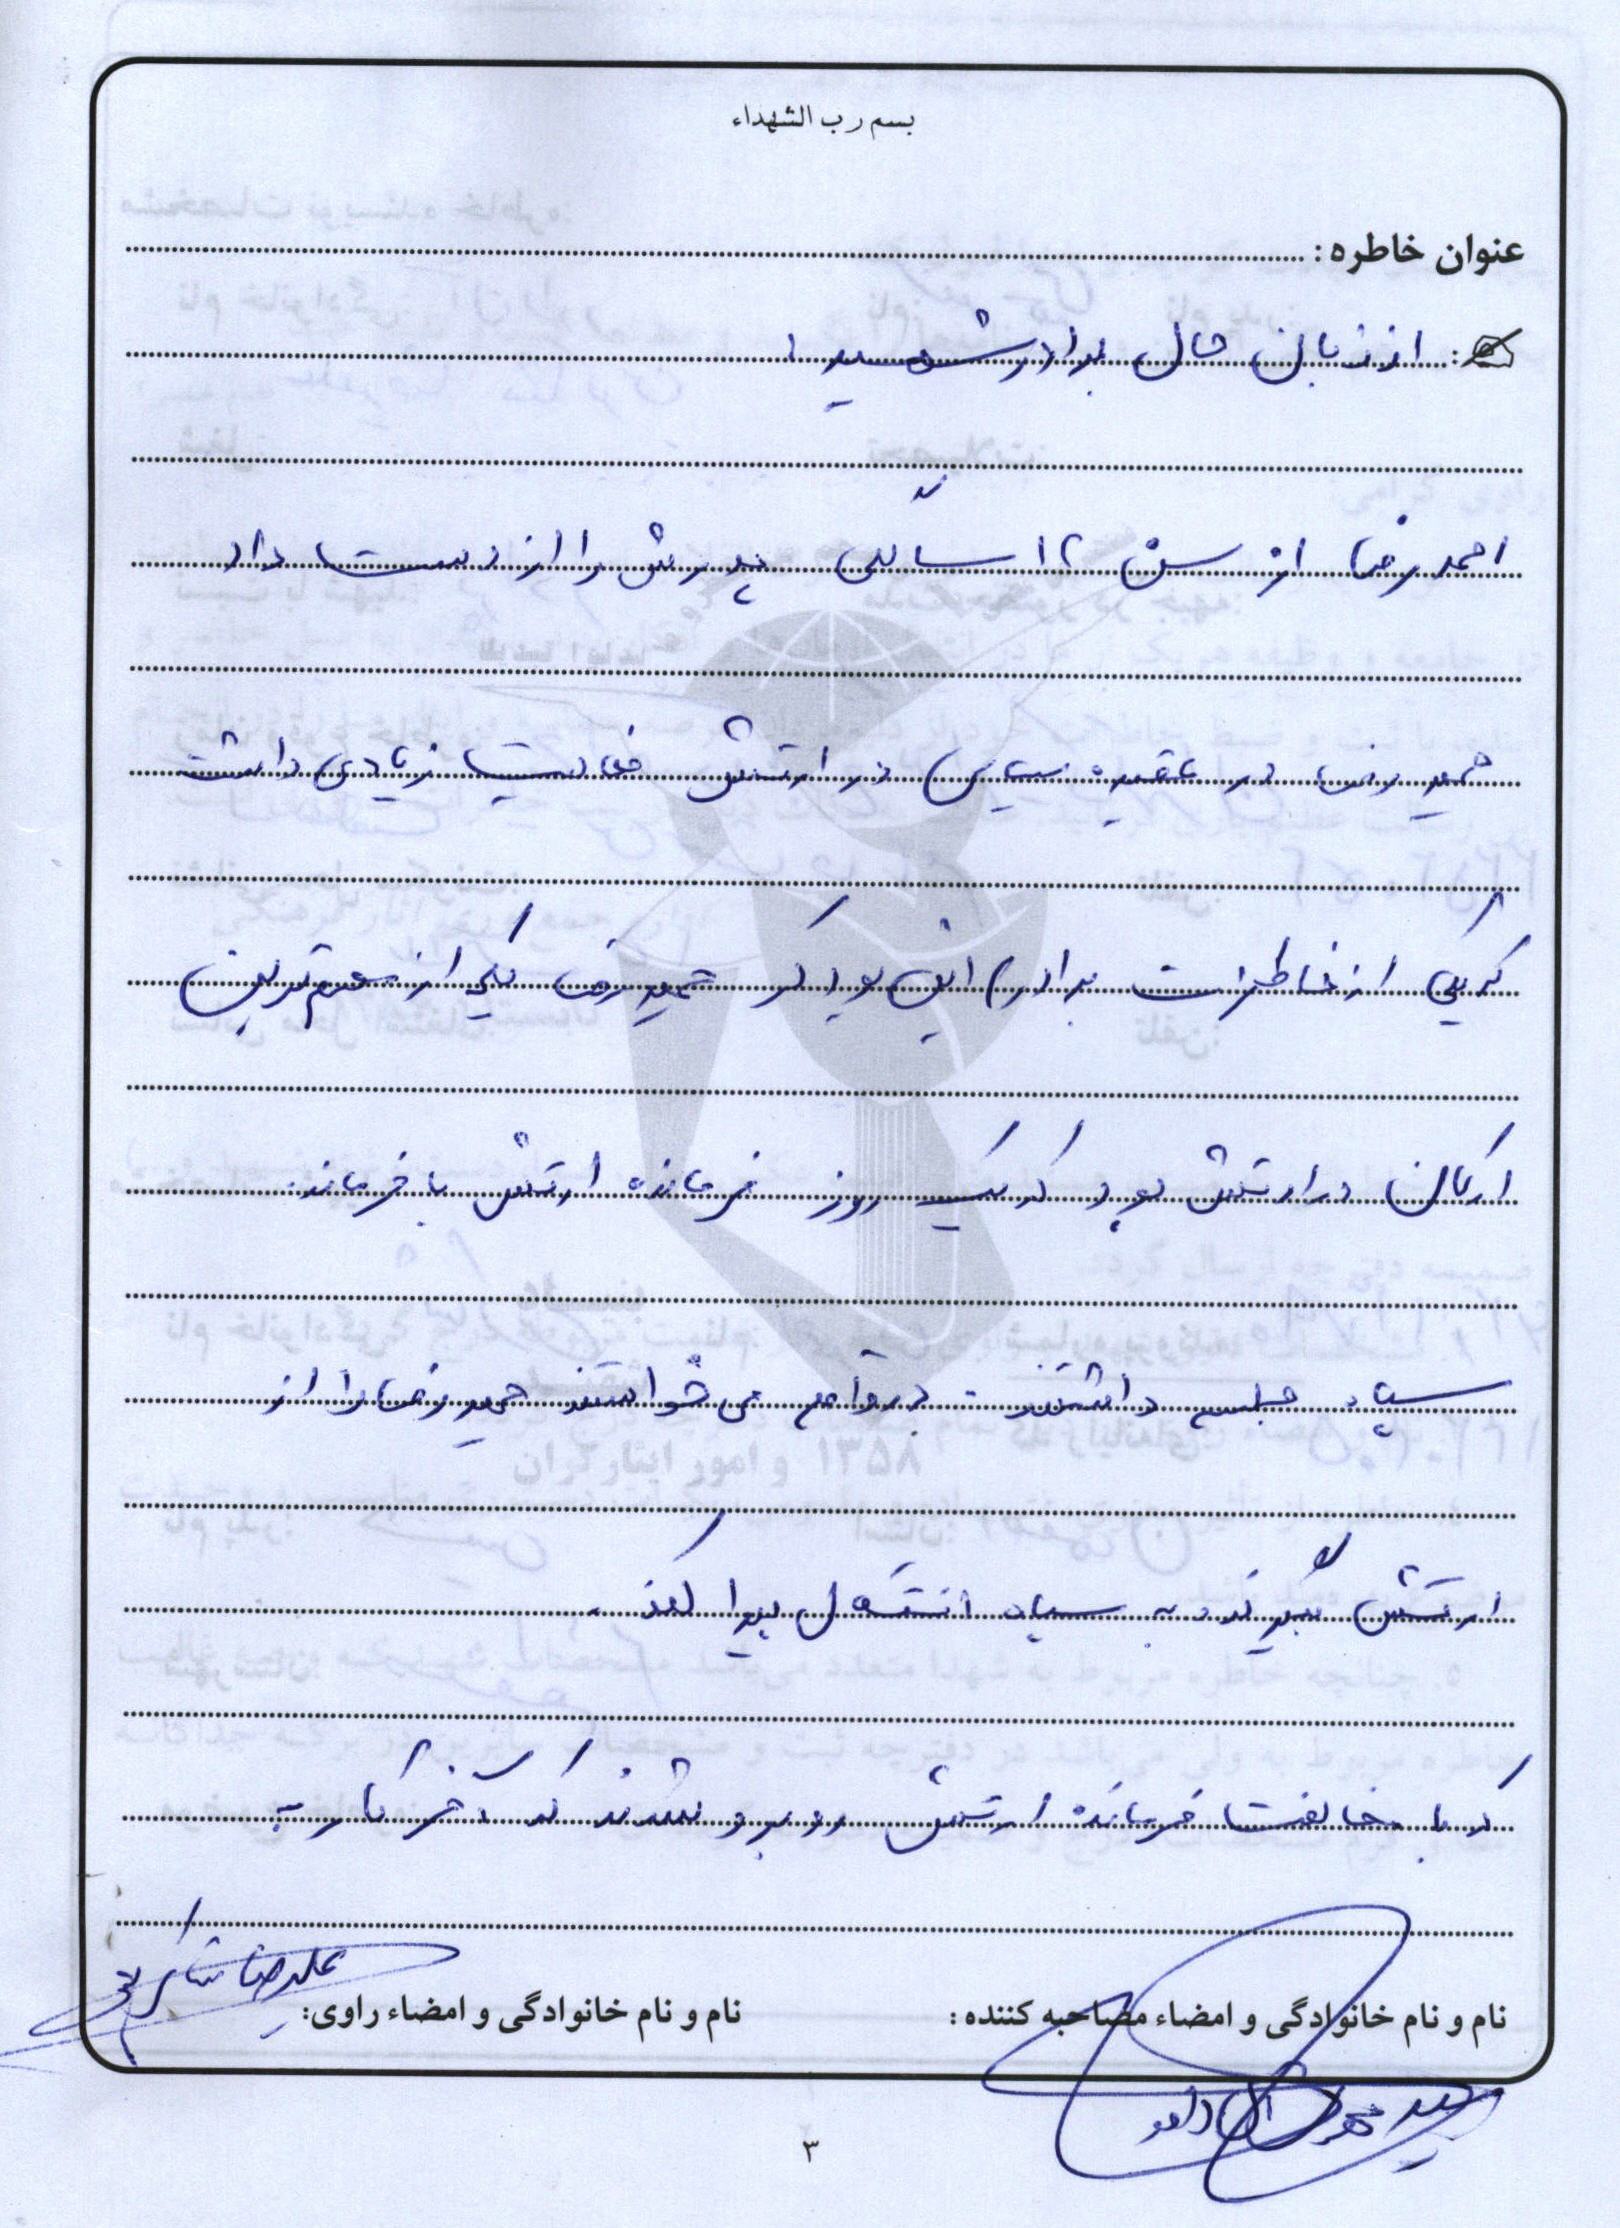 بسم رب الشهداء
عنوان خاطره :
از زبان حال برادر شهید :
احمدرضا از سن ۱۲ سالگی پدرش را از دست داد
حمیدرضا در عقیده سیاسی در ارتش فعالیت زیادی داشت
که یکی از خاطرات برادرم این بود که حمیدرضا یکی از مهم‌ترین
ارکان در ارتش بود که یک روز فرمانده ارتش با فرمانده
سپاه جلسه داشتند در واقع می خواستند حمیدرضا را از
ارتش بگیرند و به سپاه انتقال پیدا کند .
که با مخالفت فرمانده ارتش روبرو شدند که آخر کار به
نام و نام خانوادگی و امضاء مصاحبه کننده :
نام و نام خانوادگی و امضاء راوی:
علیرضا
سید محمد آل داود
۳